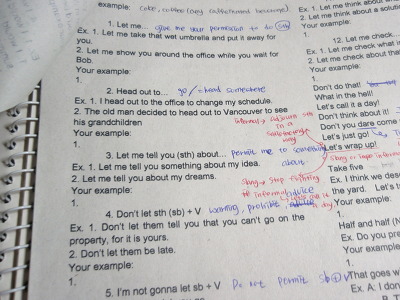 example: coke, coffee (any caffeinated beverage)
1. Let me... give me your permission to do sth
Ex. 1. Let me take that wet umbrella and put it away for
you.
2. Let me show you around the office while you wait for
Bob.
Your example:
1.
2. Head out to... go / head somewhere
Ex. 1. I head out to the office to change my schedule.
2. The old man decided to head out to Vancouver to see
his grandchildren
Your example:
1.
3. Let me tell you (sth) about... permit me to something about
Ex. 1. Let me tell you something about my idea.
2. Let me tell you about my dreams.
Your example:
1.
4. Don't let sth (sb) + V warning, prohibit
Ex. 1. Don't let them tell you that you can't go on the
property, for it is yours.
2. Don't let them be late.
Your example:
1.
5. I'm not gonna let sb + V Do not permit sb + V
Ex. 1. Let me think about
2. Let me think about a solu
Your example:
1.
12. Let me check...
Ex. 1. Let me check what i
2. Let me check about tha
Your example:
1.
Don't do that!
What in the hell!
Let's call it a day!
Don't think about it!
Don't you dare come
Let's just go!
Let's wrap up!
Slang or
Take five
Ex. I think we des
the yard. Let's t
Your example:
1.
Half and half (N
Ex. Do you pre
Your example:
1.
That goes w
Ex. A: I don